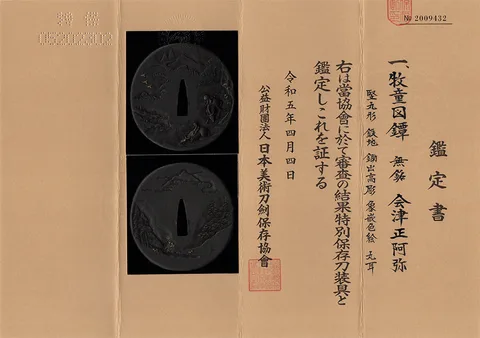 鑑定書
一、牧童図鐔 無銘 会津正阿弥
竪丸形 鉄地 鋤出高彫 象嵌色絵 丸耳
右は當協會に於て審査の結果特別保存刀装具と
鑑定しこれを証する
令和五年四月四日
公益財團法人 日本美術刀劍保存協會
№ 2009432